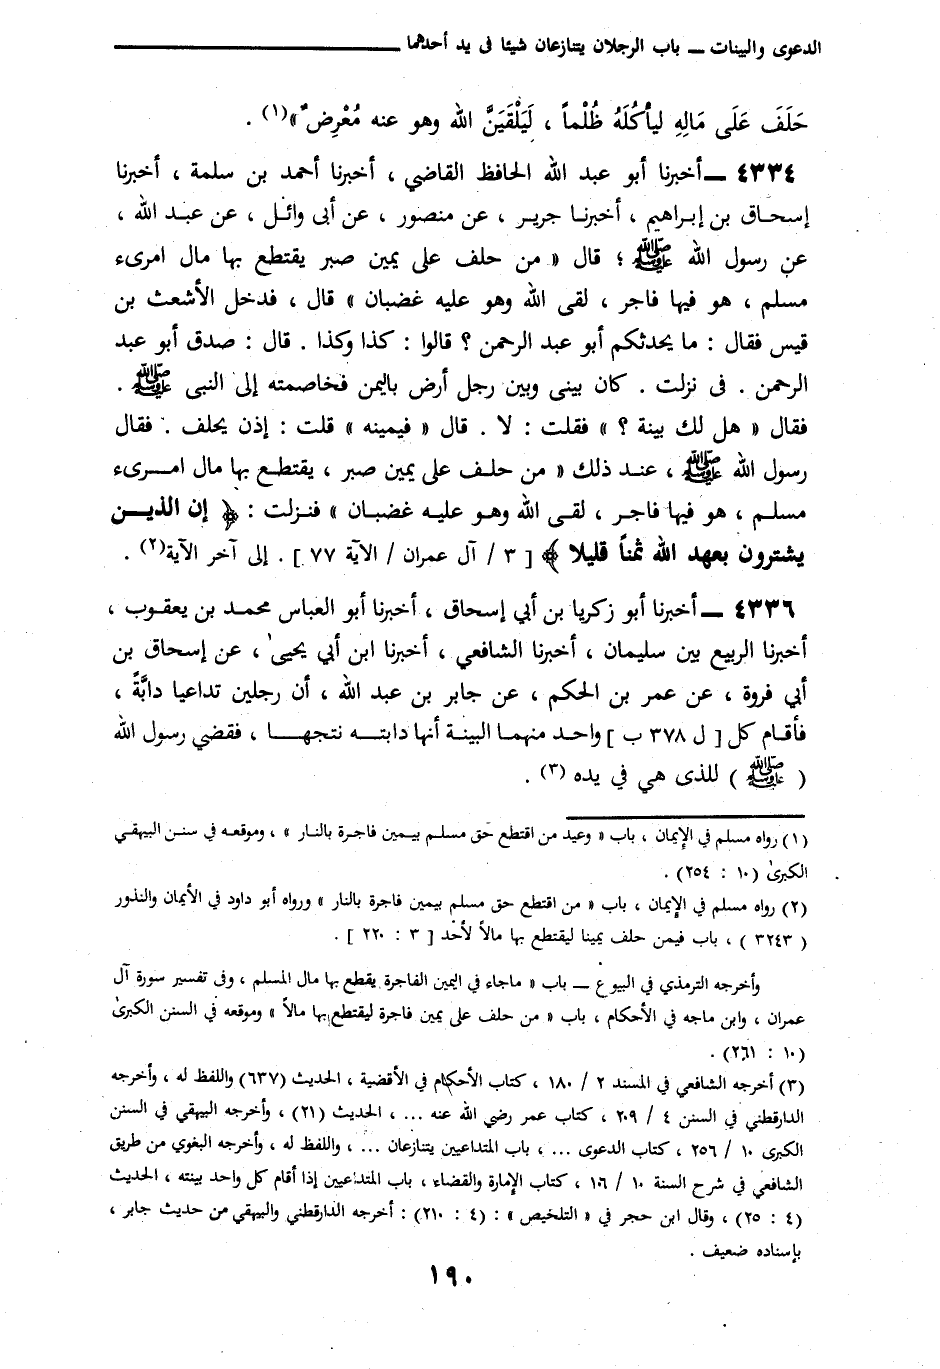 الدعوى والبينات ــ باب الرجلان يتنازعان شيئا فى يد أحدهما
حَلَفَ عَلَى مَالِهِ ليأكُلَهُ ظُلْماً ، لَيَلْقَيَنَّ الله وهو عنه مُعْرِضٌ»(١) .
٤٣٣٤ ــ أخبرنا أبو عبد الله الحافظ القاضي ، أخبرنا أحمد بن سلمة ، أخبرنا
إسحاق بن إبراهيم ، أخبرنا جرير ، عن منصور ، عن أبى وائل ، عن عبد الله ،
عن رسول الله ﷺ ؛ قال « من حلف على يمين صبر يقتطع بها مال امرىء
مسلم ، هو فيها فاجر ، لقى الله وهو عليه غضبان » قال ، فدخل الأشعث بن
قيس فقال : ما يحدثكم أبو عبد الرحمن ؟ قالوا : كذا وكذا . قال : صدق أبو عبد
الرحمن . فى نزلت . كان بينى وبين رجل أرض باليمن فخاصمته إلى النبى ﷺ .
فقال « هل لك بينة ؟ » فقلت : لا . قال « فيمينه » قلت : إذن يحلف . فقال
رسول الله ﷺ ، عند ذلك « من حلف على يمين صبر ، يقتطع بها مال امرىء
مسلم ، هو فيها فاجر ، لقى الله وهو عليه غضبان » فنزلت : ﴿ إن الذين
يشترون بعهد الله ثمناً قليلا ﴾ [ ٣ / آل عمران / الآية ٧٧ ] . إلى آخر الآية(٢) .
٤٣٣٦ ــ أخبرنا أبو زكريا بن أبي إسحاق ، أخبرنا أبو العباس محمد بن يعقوب ،
أخبرنا الربيع بين سليمان ، أخبرنا الشافعي ، أخبرنا ابن أبي يحيىٰ ، عن إسحاق بن
أبي فروة ، عن عمر بن الحكم ، عن جابر بن عبد الله ، أن رجلين تداعيا دابَّةً ،
فأقام كل [ ل ٣٧٨ ب ] واحد منهما البينة أنها دابته نتجها ، فقضي رسول الله
( ﷺ ) للذى هي في يده (٣) .
(١) رواه مسلم في الإيمان ، باب « وعيد من اقتطع حق مسلم بيمين فاجرة بالنار » ، وموقعه في سنن البيهقي
الكبرىٰ (١٠ : ٢٥٤) .
(٢) رواه مسلم في الإيمان ، باب « من اقتطع حق مسلم بيمين فاجرة بالنار » ورواه أبو داود في الأيمان والنذور
( ٣٢٤٣ ) ، باب فيمن حلف يمينا ليقتطع بها مالاً لأحد [ ٣ : ٢٢٠ ] .
وأخرجه الترمذي في البيوع ــ باب « ماجاء في اليمين الفاجرة يقطع بها مال المسلم ، وفى تفسير سورة آل
عمران ، وابن ماجه في الأحكام ، باب « من حلف على يمين فاجرة ليقتطع بها مالاً » وموقعه في السنن الكبرىٰ
(١٠ : ٢٦١) .
(٣) أخرجه الشافعي في المسند ٢ / ١٨٠ ، كتاب الأحكام في الأقضية ، الحديث (٦٣٧) واللفظ له ، وأخرجه
الدارقطني في السنن ٤ / ٢٠٩ ، كتاب عمر رضي الله عنه ... ، الحديث (٢١) ، وأخرجه البيهقي في السنن
الكبرى ١٠ / ٢٥٦ ، كتاب الدعوى ... ، باب المتداعيين يتنازعان ... ، واللفظ له ، وأخرجه البغوي من طريق
الشافعي في شرح السنة ١٠ / ١٠٦ ، كتاب الإمارة والقضاء ، باب المتداعيين إذا أقام كل واحد بينته ، الحديث
(٤ : ٢٥) ، وقال ابن حجر في « التلخيص » : (٤ : ٢١٠) : أخرجه الدارقطني والبيهقي من حديث جابر ،
بإسناده ضعيف .
١٩٠